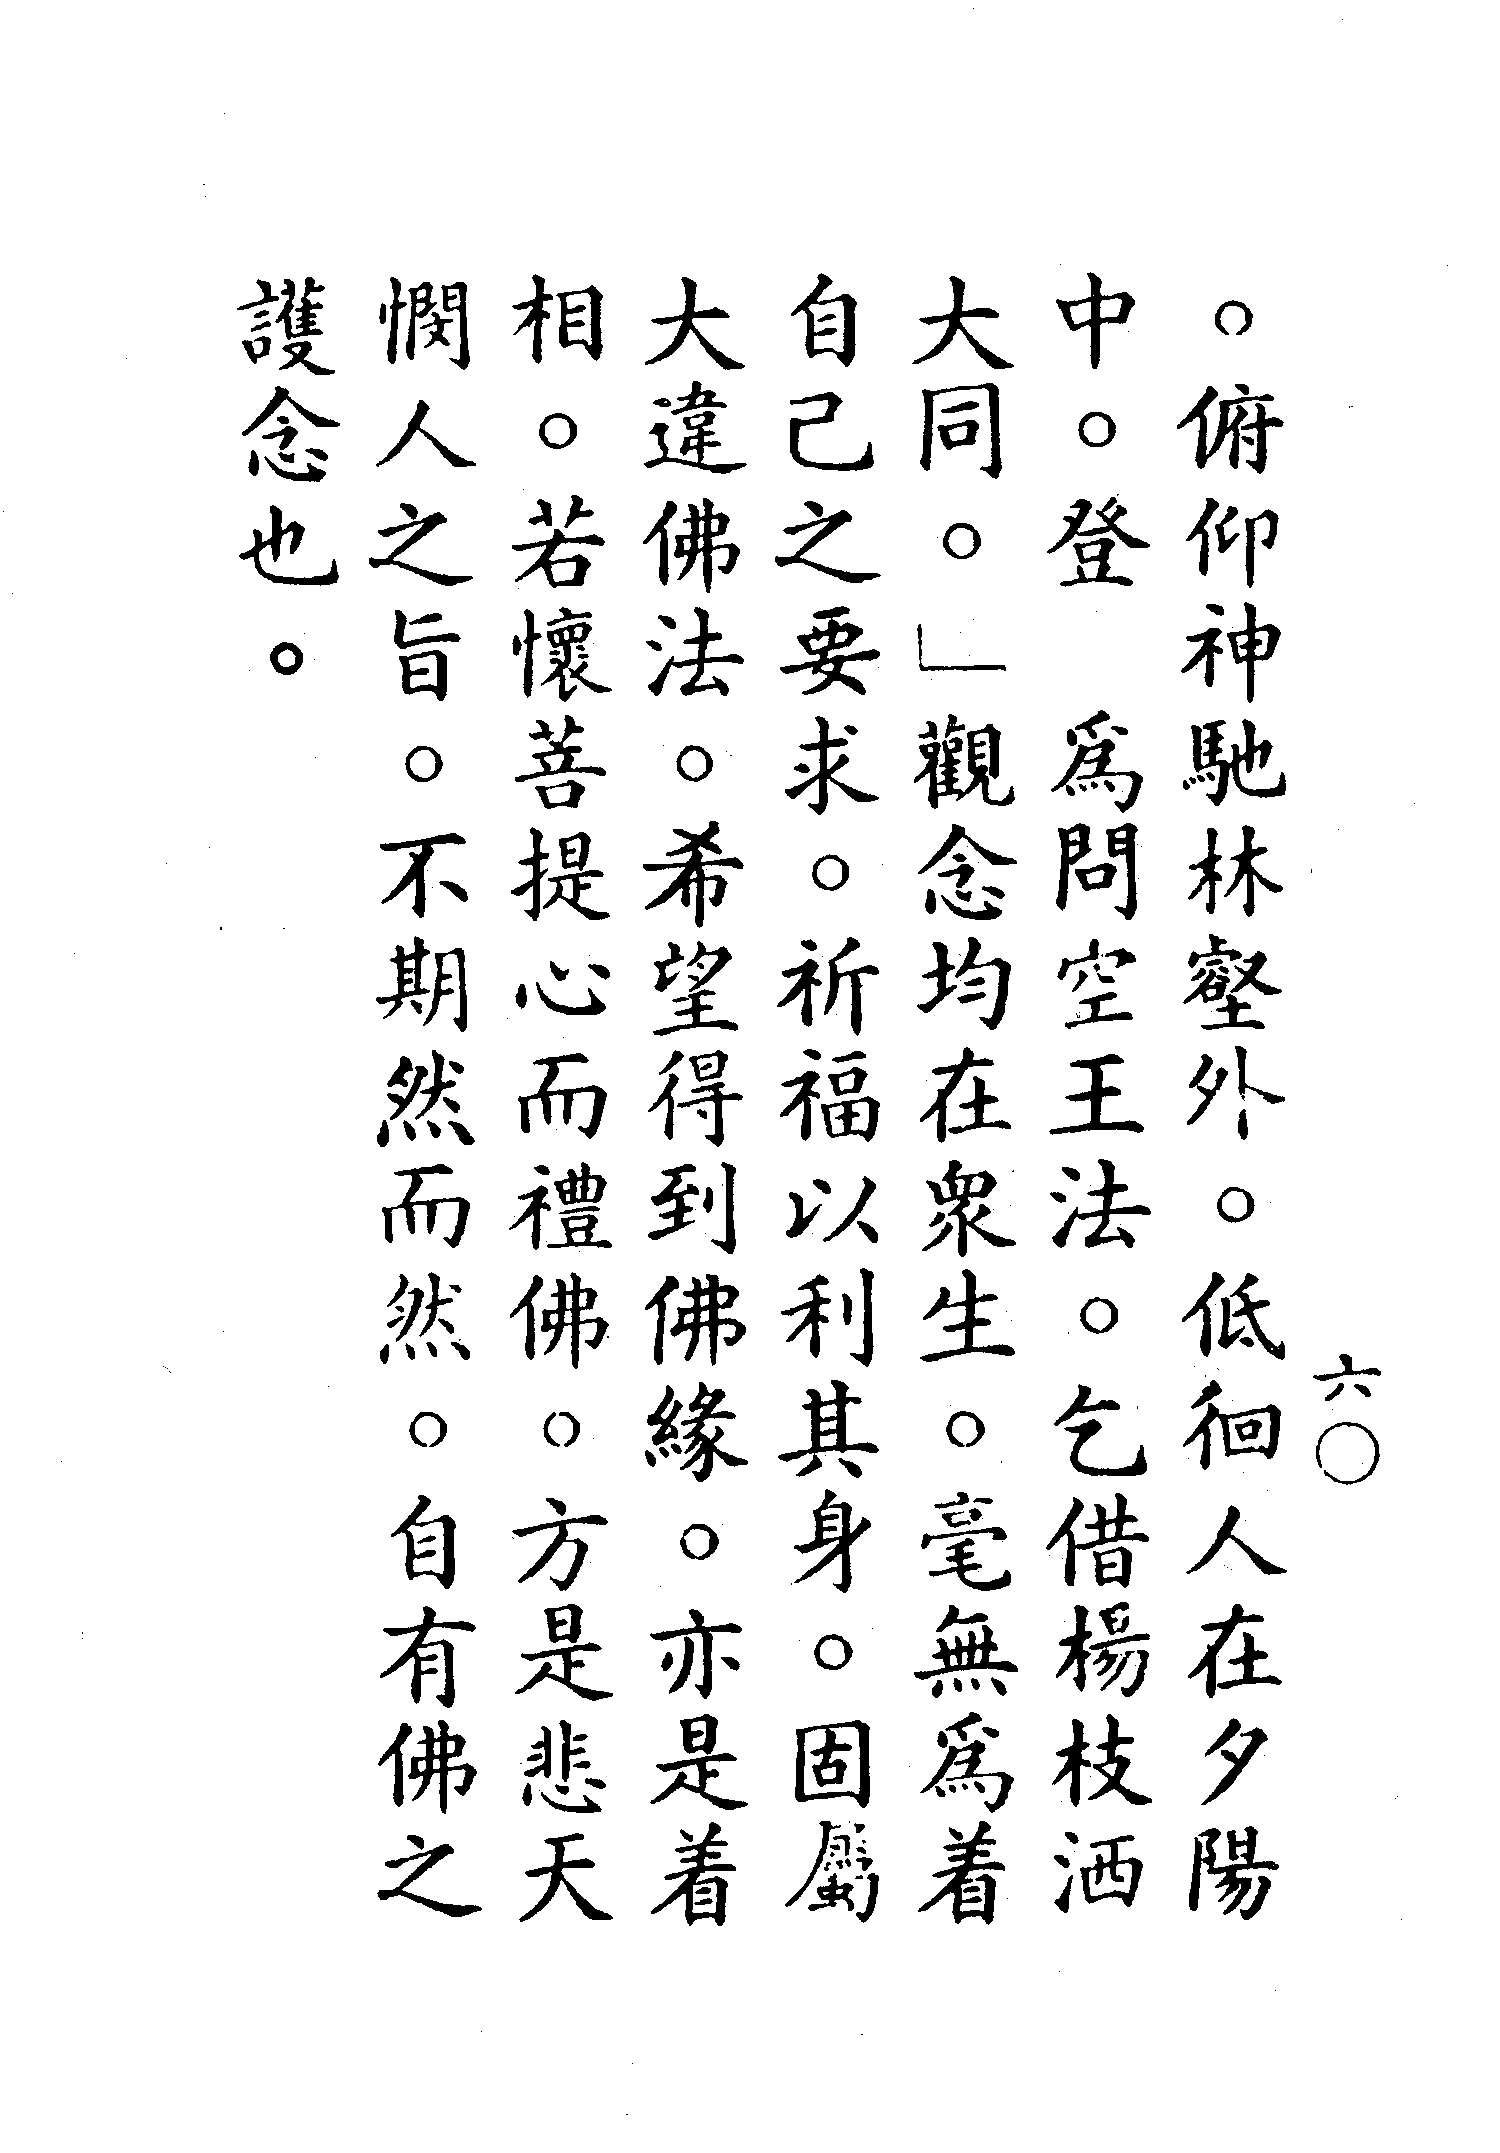 六〇
。俯仰神馳林壑外。低徊人在夕陽
中。登　為問空王法。乞借楊枝洒
大同。」觀念均在眾生。毫無為着
自己之要求。祈福以利其身。固屬
大違佛法。希望得到佛緣。亦是着
相。若懷菩提心而禮佛。方是悲天
憫人之旨。不期然而然。自有佛之
護念也。